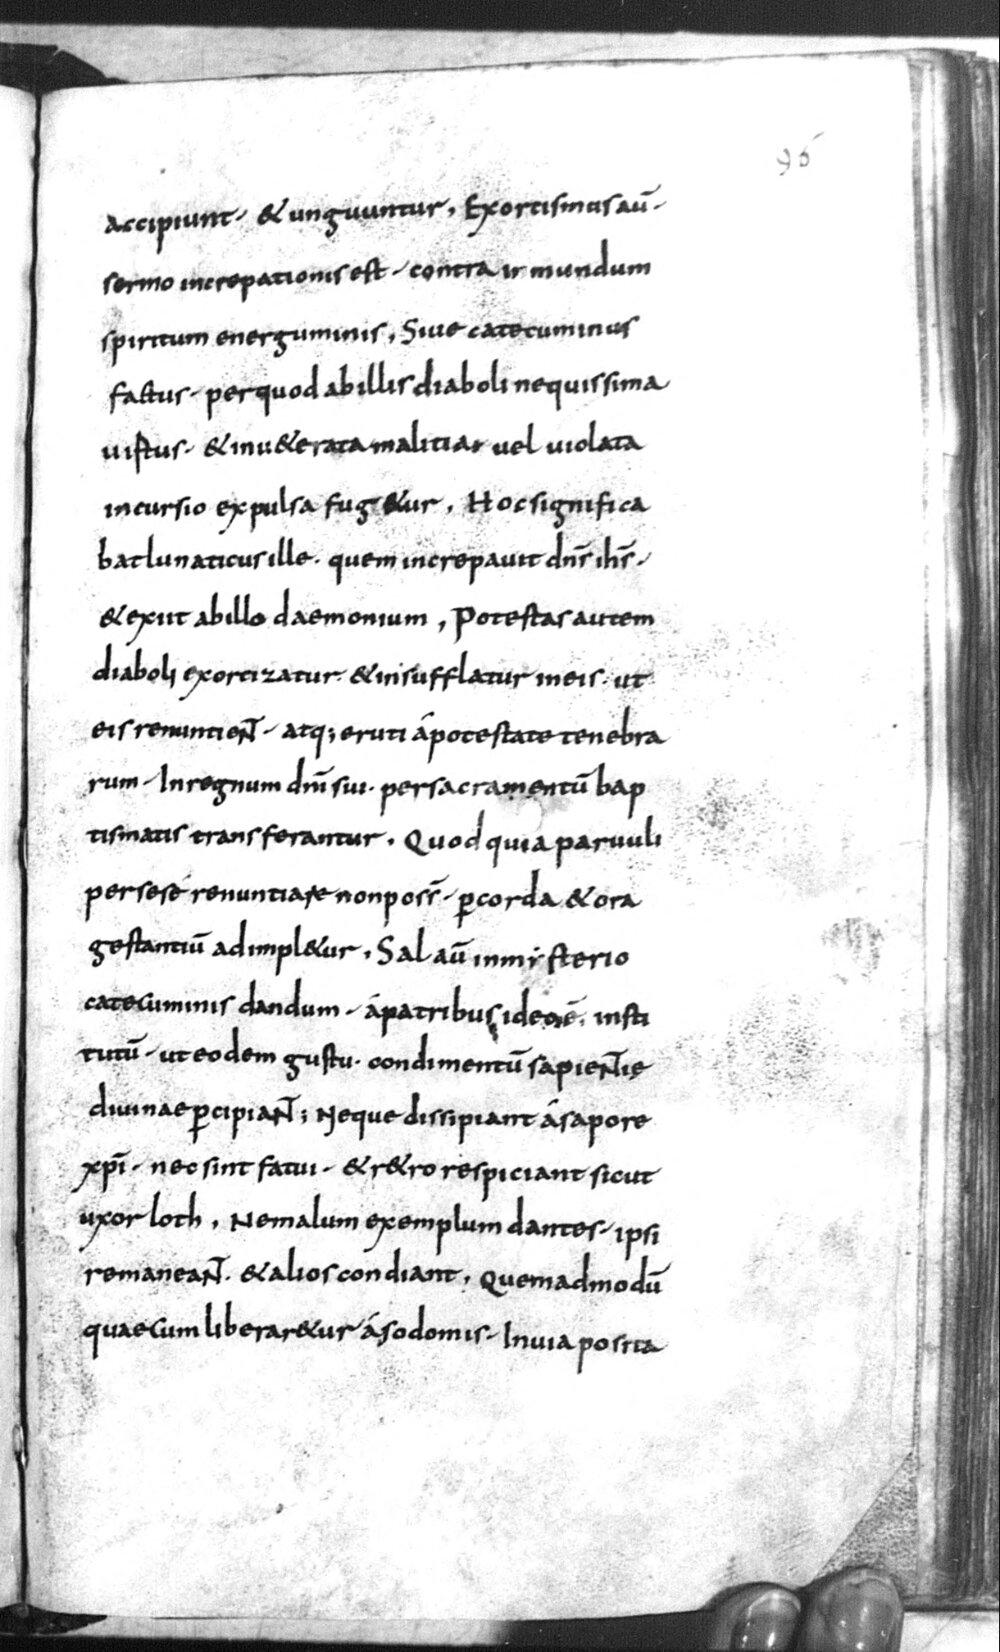 96
Accipiunt· & unguuntur, Exorcismus aū·
sermo increpationis est· contra inmundum
spiritum energuminis, Siue catecuminus
factus· per quod ab illis diaboli nequissima
uistus· & inu&erata malitia· uel uiolata
incursio expulsa fug&ur, Hoc significa
bat lunaticus ille· quem increpauit dn̄s ih̄s·
& exiit ab illo daemonium, Potestas autem
diaboli exorcizatur & insufflatur in eis· ut
eis renuntieN̄T· atq; eruti á potestate tenebra
rum· In regnum dn̄i sui· per sacramentū bap
tismatis transferantur, Quod quia paruuli
per sese renuntiare non poss̄· ꝑ corda & ora
gestantiū adimpl&ur, Sal aū in mysterio
catecuminis dandum· á patribus ideo ē insti
tutū· ut eodem gustu· condimentū sapieN̄Tię
diuinae ꝑcipiaN̄T; Neque dissipiant á sapore
xp̄i· nec sint fatui· & r&ro respiciant sicut
uxor loth, Ne malum exemplum dantes· ipsi
remaneaN̄T· & alios condiant, Quemadmodū
quae cum liberar&ur á sodomis· In uia posita